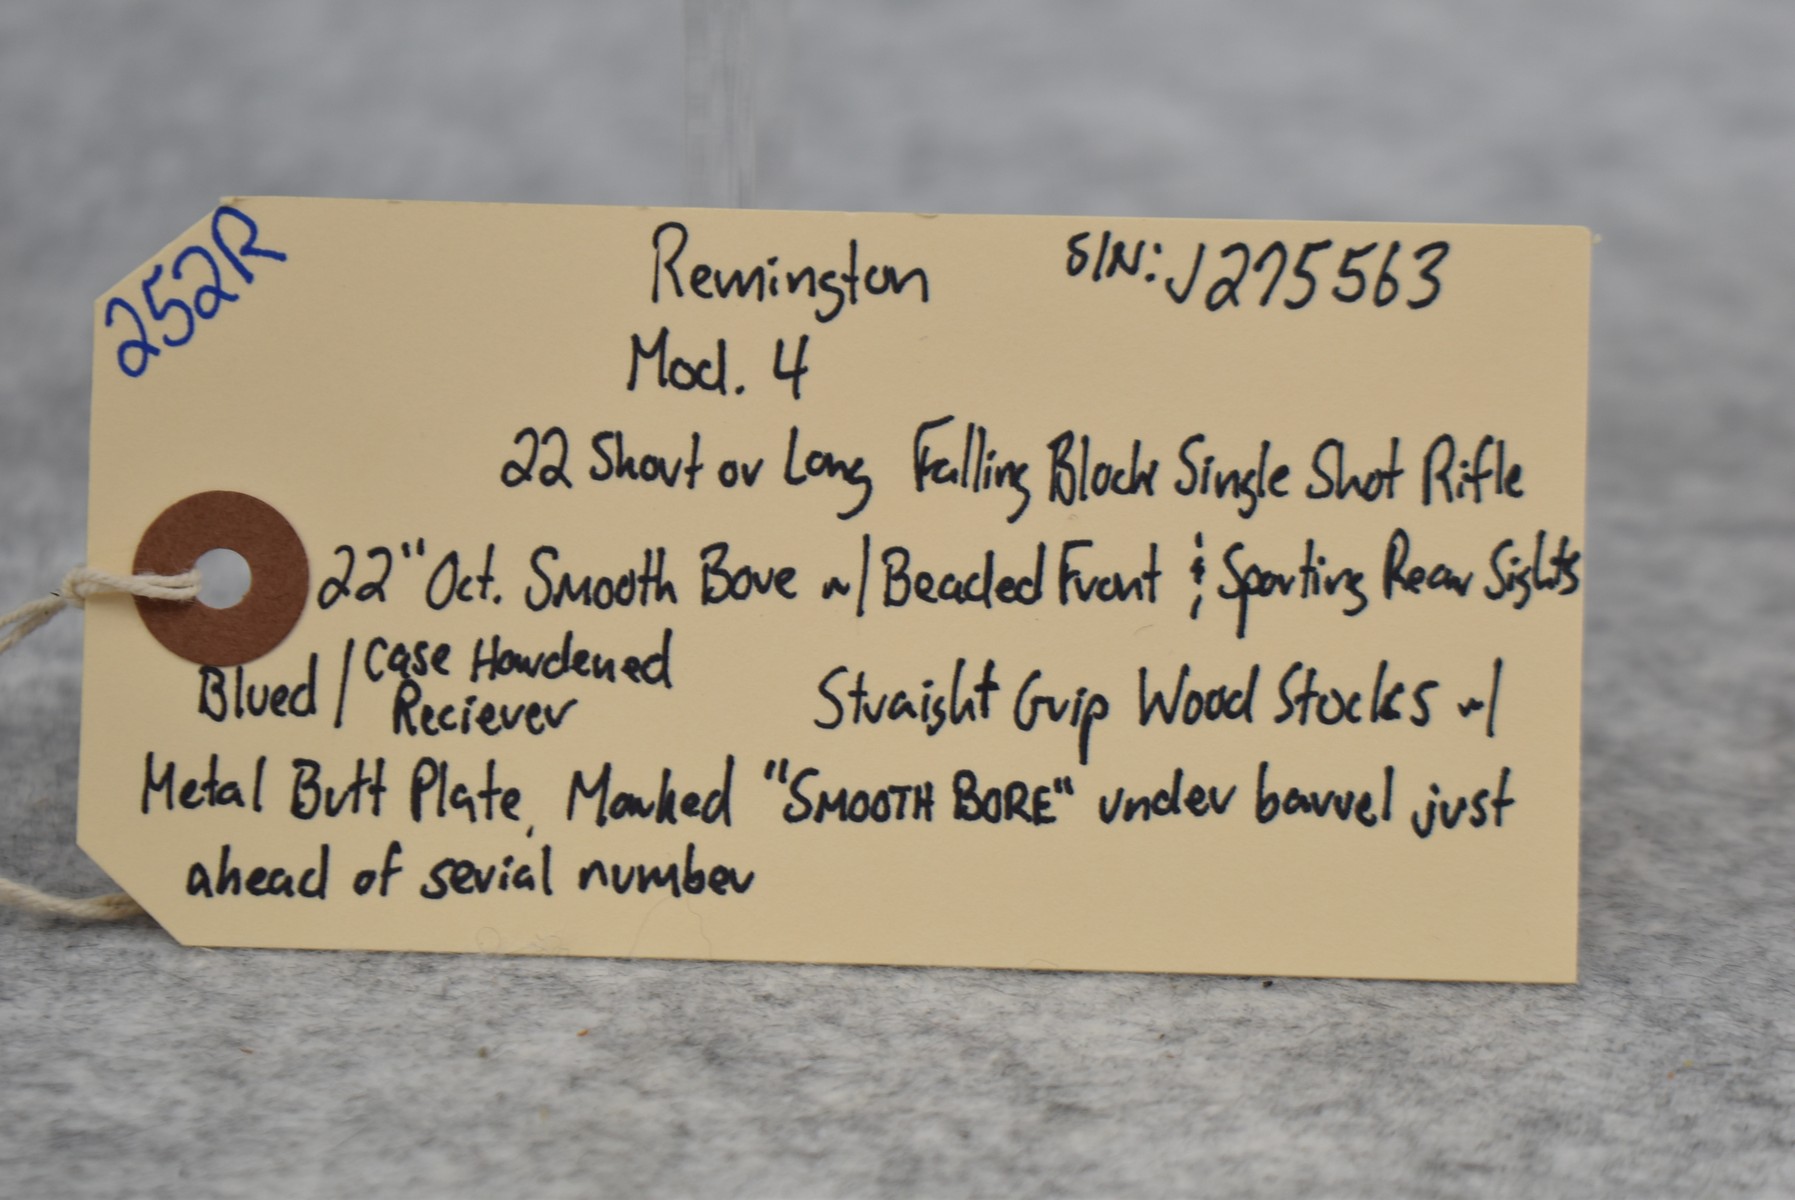 252R
Remington S/N: J275563
Mod. 4
22 Short or Long Falling Block Single Shot Rifle
22" Oct. Smooth Bore w/ Beaded Front & Sporting Rear Sights
Blued / Case Hardened Reciever Straight Grip Wood Stocks w/
Metal Butt Plate, Marked "SMOOTH BORE" under barrel just
ahead of serial number